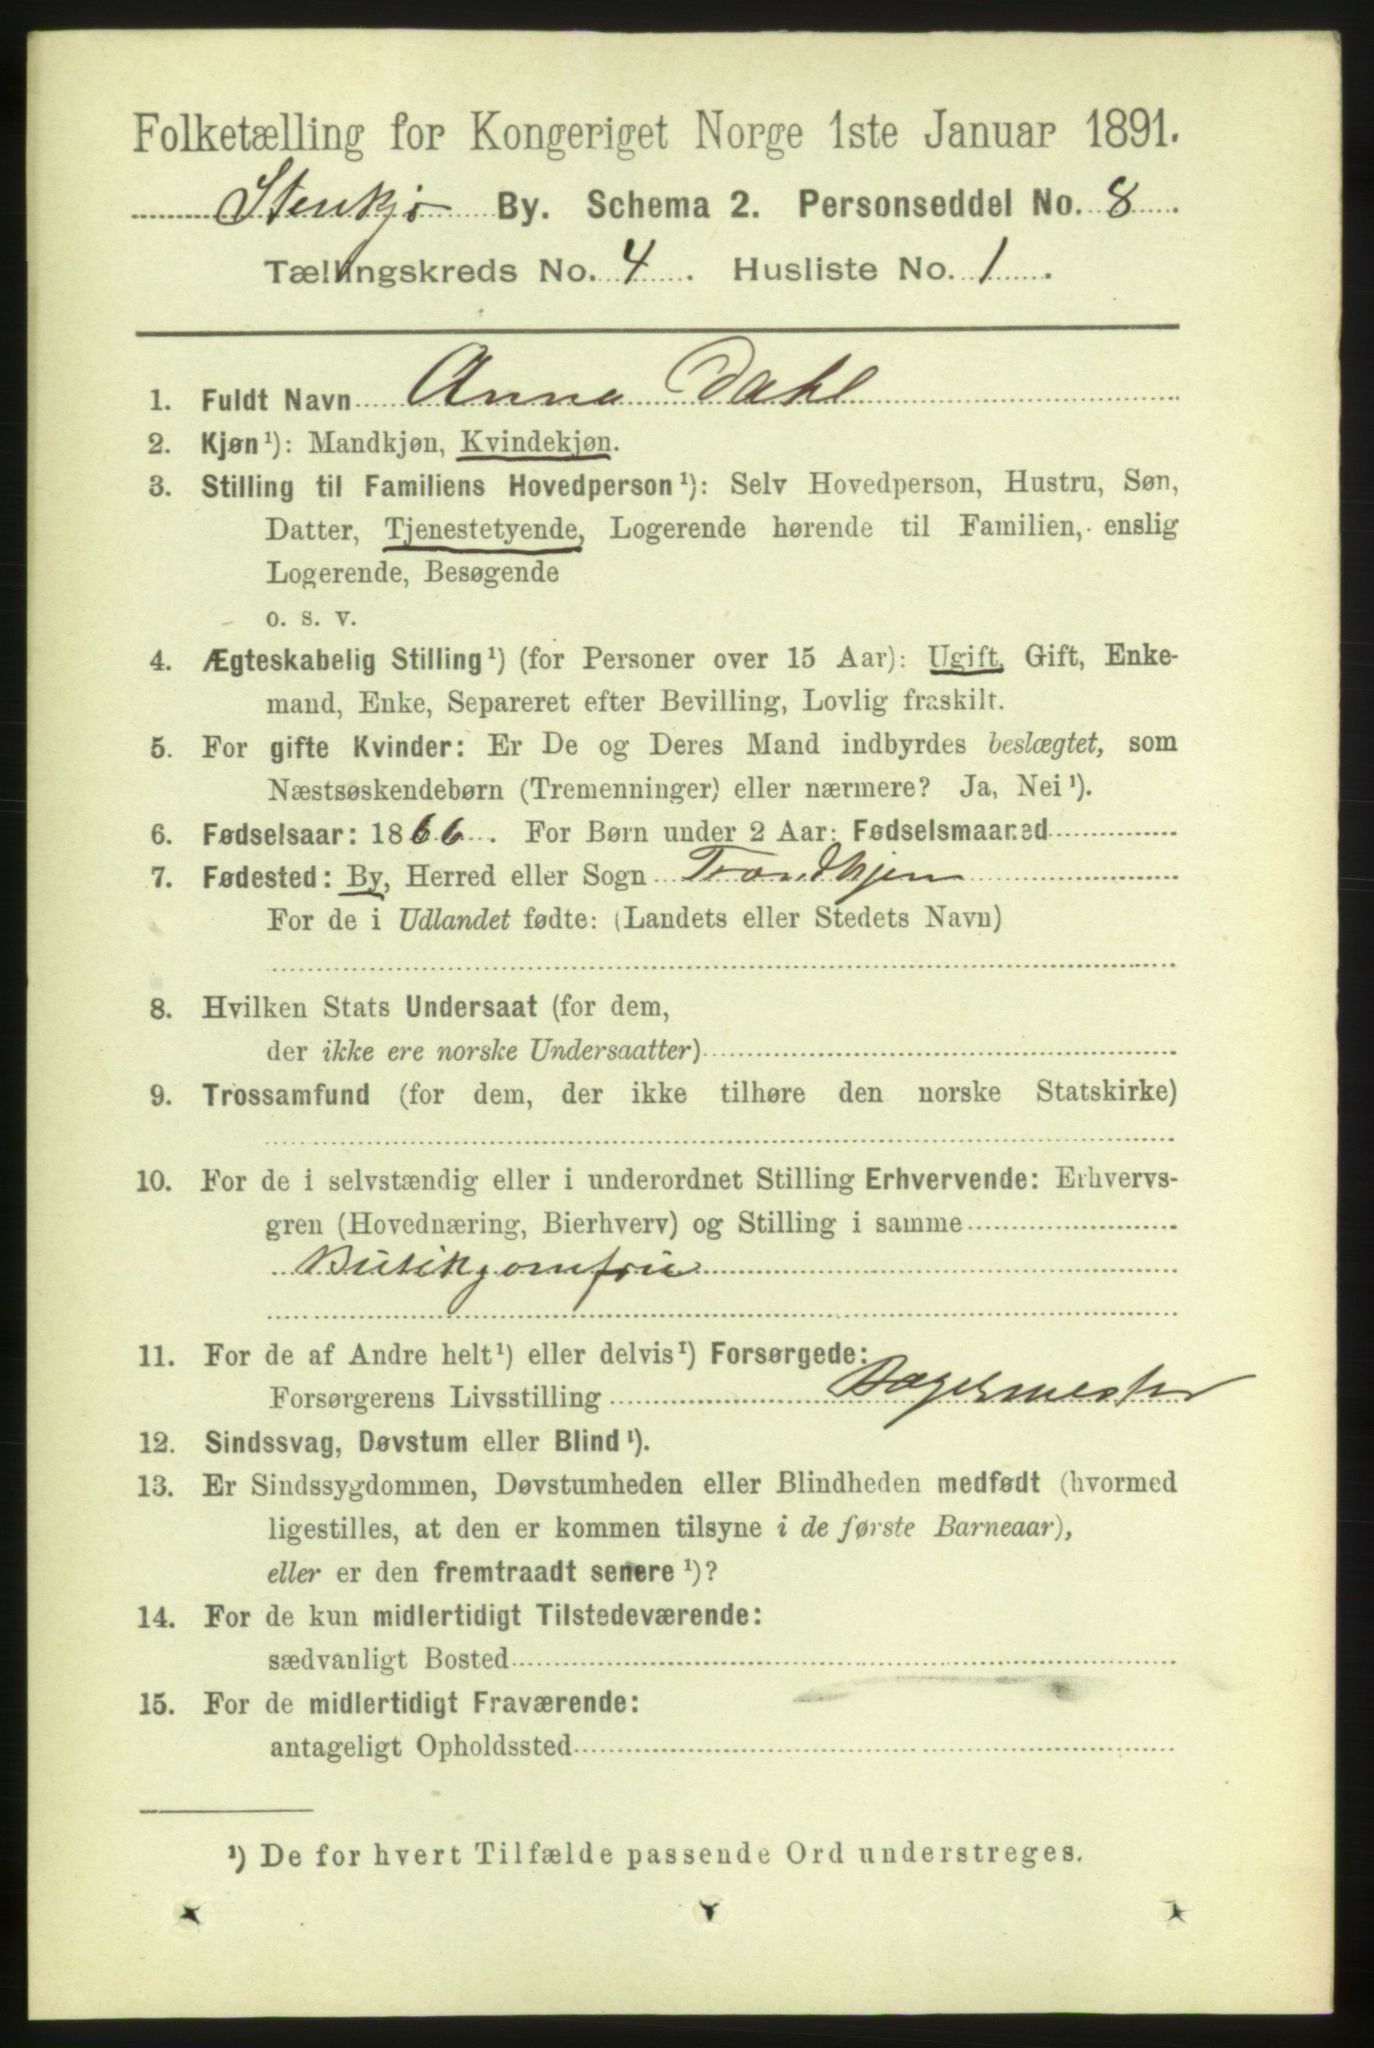 Folketælling for Kongeriget Norge 1ste Januar 1891.
Stenkjr By. Schema 2. Personseddel No. 8.
Tællingskreds No. 4. Husliste No. 1.
1. Fuldt Navn Anna Dahl
2. Kjøn¹): Mandkjøn, Kvindekjøn.
3. Stilling til Familiens Hovedperson¹): Selv Hovedperson, Hustru, Søn,
Datter, Tjenestetyende, Logerende hørende til Familien, enslig
Logerende, Besøgende
o. s. v.
4. Ægteskabelig Stilling¹) (for Personer over 15 Aar): Ugift, Gift, Enke-
mand, Enke, Separeret efter Bevilling, Lovlig fraskilt.
5. For gifte Kvinder: Er De og Deres Mand indbyrdes beslægtet, som
Næstsøskendebørn (Tremenninger) eller nærmere? Ja, Nei¹).
6. Fødselsaar: 1866. For Børn under 2 Aar: Fødselsmaaned
7. Fødested: By, Herred eller Sogn Trondhjem
For de i Udlandet fødte: (Landets eller Stedets Navn)
8. Hvilken Stats Undersaat (for dem,
der ikke ere norske Undersaatter)
9. Trossamfund (for dem, der ikke tilhøre den norske Statskirke)
10. For de i selvstændig eller i underordnet Stilling Erhvervende: Erhvervs-
gren (Hovednæring, Bierhverv) og Stilling i samme
Butikjomfru
11. For de af Andre helt¹) eller delvis¹) Forsørgede:
Forsørgerens Livsstilling Bagermester
12. Sindssvag, Døvstum eller Blind¹).
13. Er Sindssygdommen, Døvstumheden eller Blindheden medfødt (hvormed
ligestilles, at den er kommen tilsyne i de første Barneaar),
eller er den fremtraadt senere¹)?
14. For de kun midlertidigt Tilstedeværende:
sædvanligt Bosted
15. For de midlertidigt Fraværende:
antageligt Opholdssted
¹) De for hvert Tilfælde passende Ord understreges.